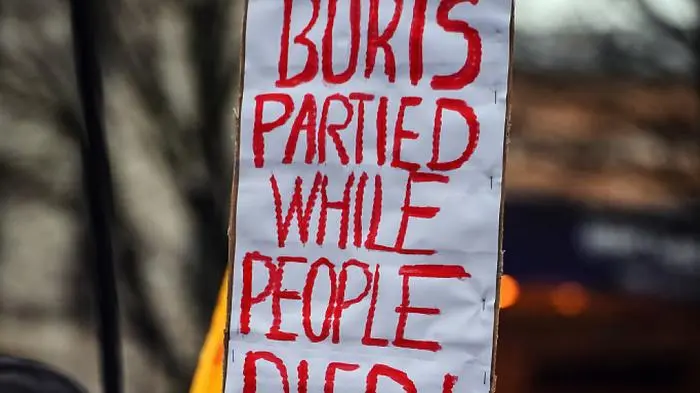 BORIS
PARTIED
WHILE
PEOPLE
DIED!